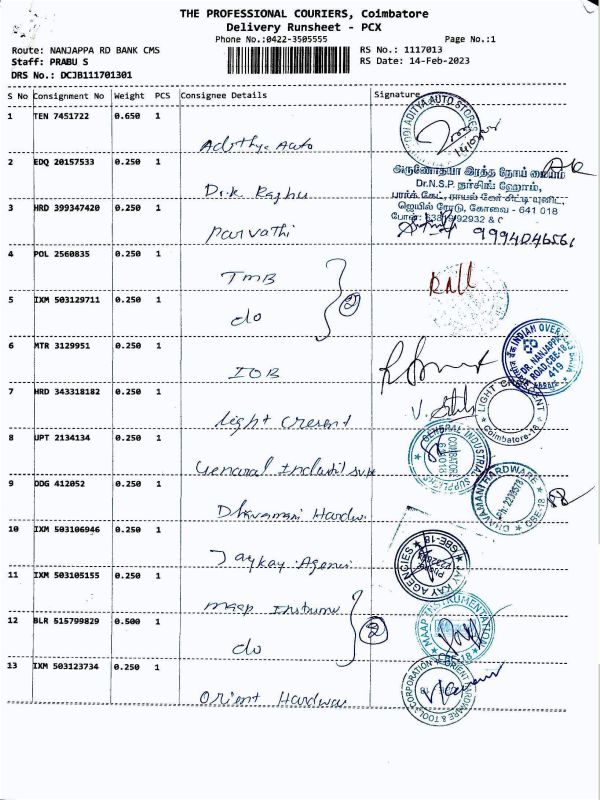 THE PROFESSIONAL COURIERS, Coimbatore
Delivery Runsheet - PCX
Phone No.:0422-3505555
Page No.:1
Route: NANJAPPA RD BANK CMS
RS No.: 1117013
Staff: PRABU S
RS Date: 14-Feb-2023
DRS No.: DCJB111701301
S No Consignment No Weight PCS Consignee Details Signature
1 TEN 7451722 0.650 1
ADITYA AUTO STORES
Adithya Auto
2 EDQ 20157533 0.250 1
அருணோதயா இரத்த நோய் மையம்
Dr.N.S.P. நர்சிங் ஹோம்,
Dr.K Raghu
பார்க் கேட், ராயல் கேர் சிட்டி யுனிட்,
3 HRD 399347420 0.250 1
ஜெயில் ரோடு, கோவை - 641 018
Parvathi
9994046561
4 POL 2560835 0.250 1
TMB
5 IXM 503129711 0.250 1
do
2
6 MTR 3129951 0.250 1
INDIAN OVERSEAS BANK
DR. NANJAPPA
ROAD, CBE-18
419
IOB
7 HRD 343318182 0.250 1
LIGHT CRESCENT
Coimbatore-18
Light Cresent
8 UPT 2134134 0.250 1
GENERAL INDUSTRIAL SUPPLIERS
COIMBATORE
641018
General
9 DDG 412052 0.250 1
DHAVAMANI HARDWARE
CBE-18
Dhavamani Hardw
10 IXM 503106946 0.250 1
JAY KAY AGENCIES
CBE-18
Jaykay Agenci
11 IXM 503105155 0.250 1
Maap Instrume
12 BLR 515799829 0.500 1
MAAP INSTRUMENTATION
CBE-18
do
2
13 IXM 503123734 0.250 1
ORIENT HARDWARE & TOOLS CORPORATION
Orient Hardwar